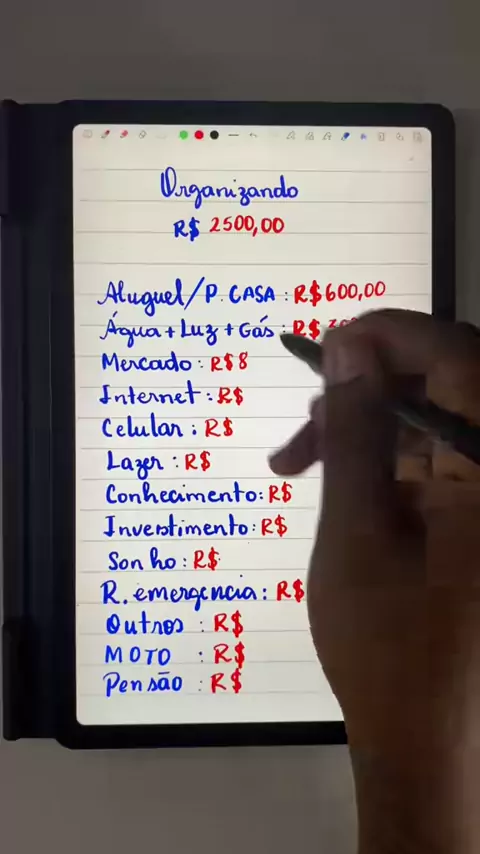 Organizando
R$ 2500,00
Aluguel/P. CASA : R$ 600,00
Água + Luz + Gás : R$
Mercado : R$ 8
Internet : R$
Celular : R$
Lazer : R$
Conhecimento : R$
Investimento : R$
Sonho : R$
R. emergencia : R$
Outros : R$
MOTO : R$
Pensão : R$